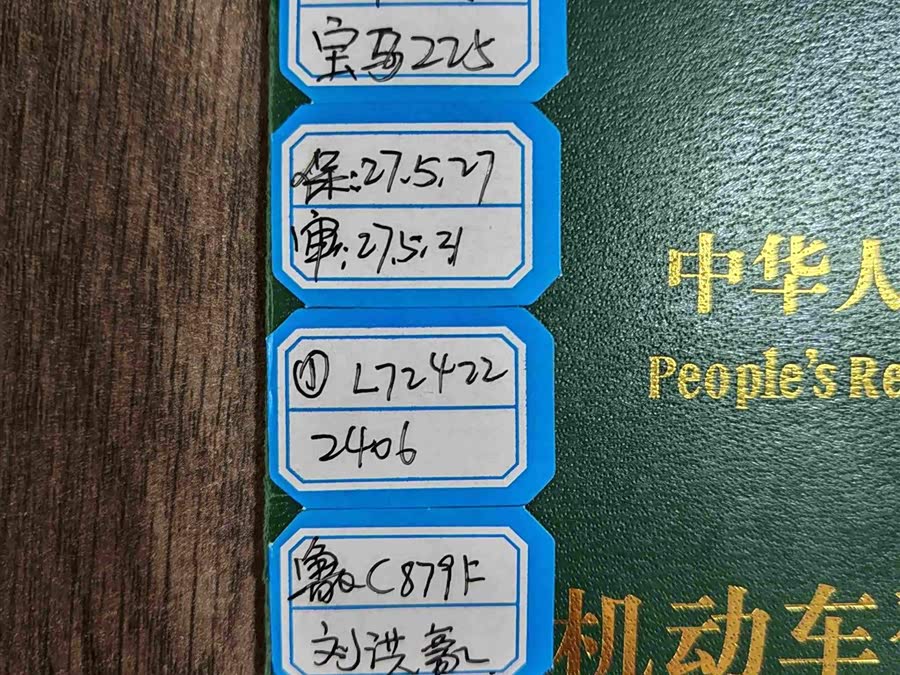 宝马225
保:27.5.27
审:27.5.31
① L72422
2406
鲁C879F
刘洪豪
中华人
People's Re
机动车